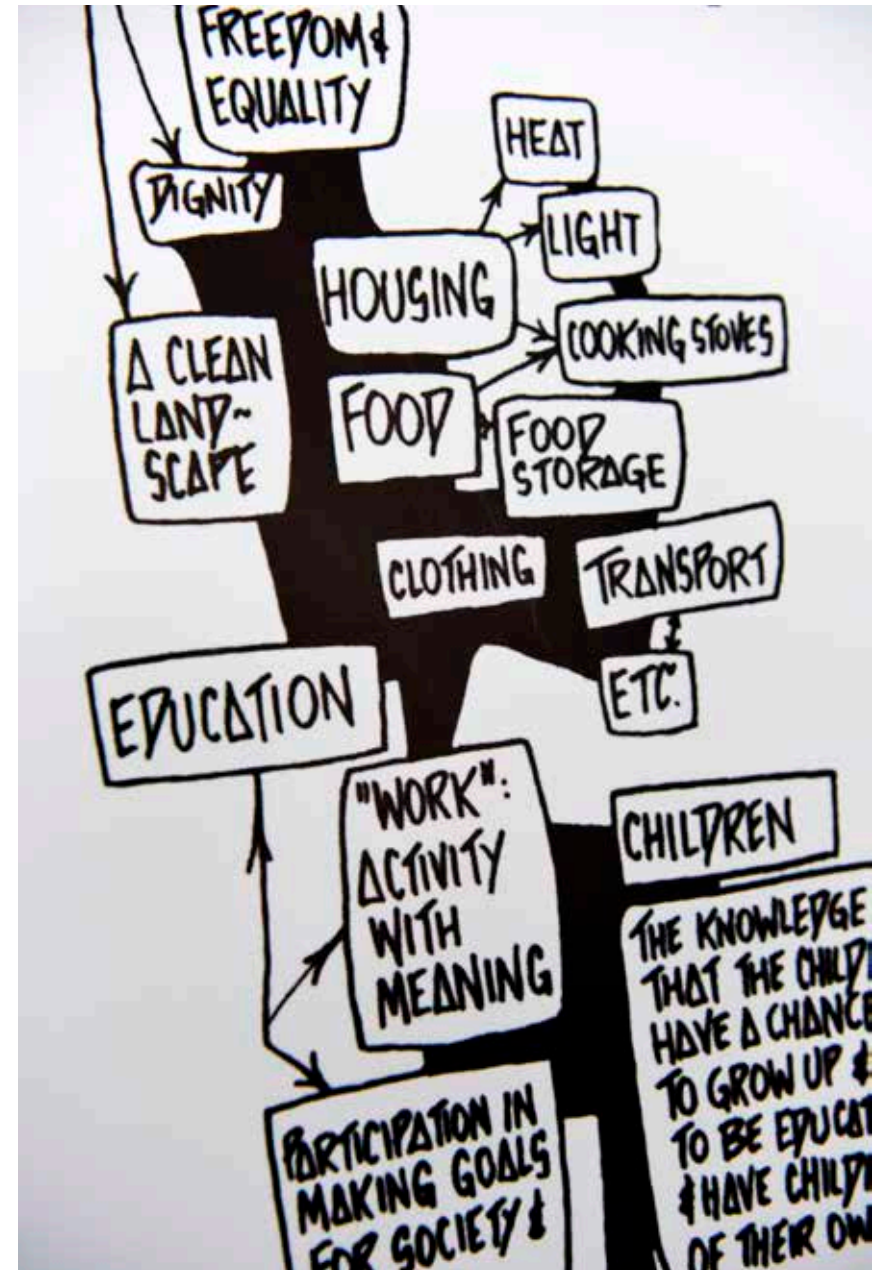 FREEDOM &
EQUALITY
DIGNITY
HEAT
LIGHT
HOUSING
COOKING STOVES
A CLEAN
LAND~
SCAPE
FOOD
FOOD
STORAGE
CLOTHING
TRANSPORT
ETC.
EDUCATION
"WORK":
ACTIVITY
WITH
MEANING
CHILDREN
THE KNOWLEDGE
THAT THE
HAVE A CHANCE
TO GROW UP &
TO BE
& HAVE
OF THEIR OWN
PARTICIPATION IN
MAKING GOALS
FOR SOCIETY &